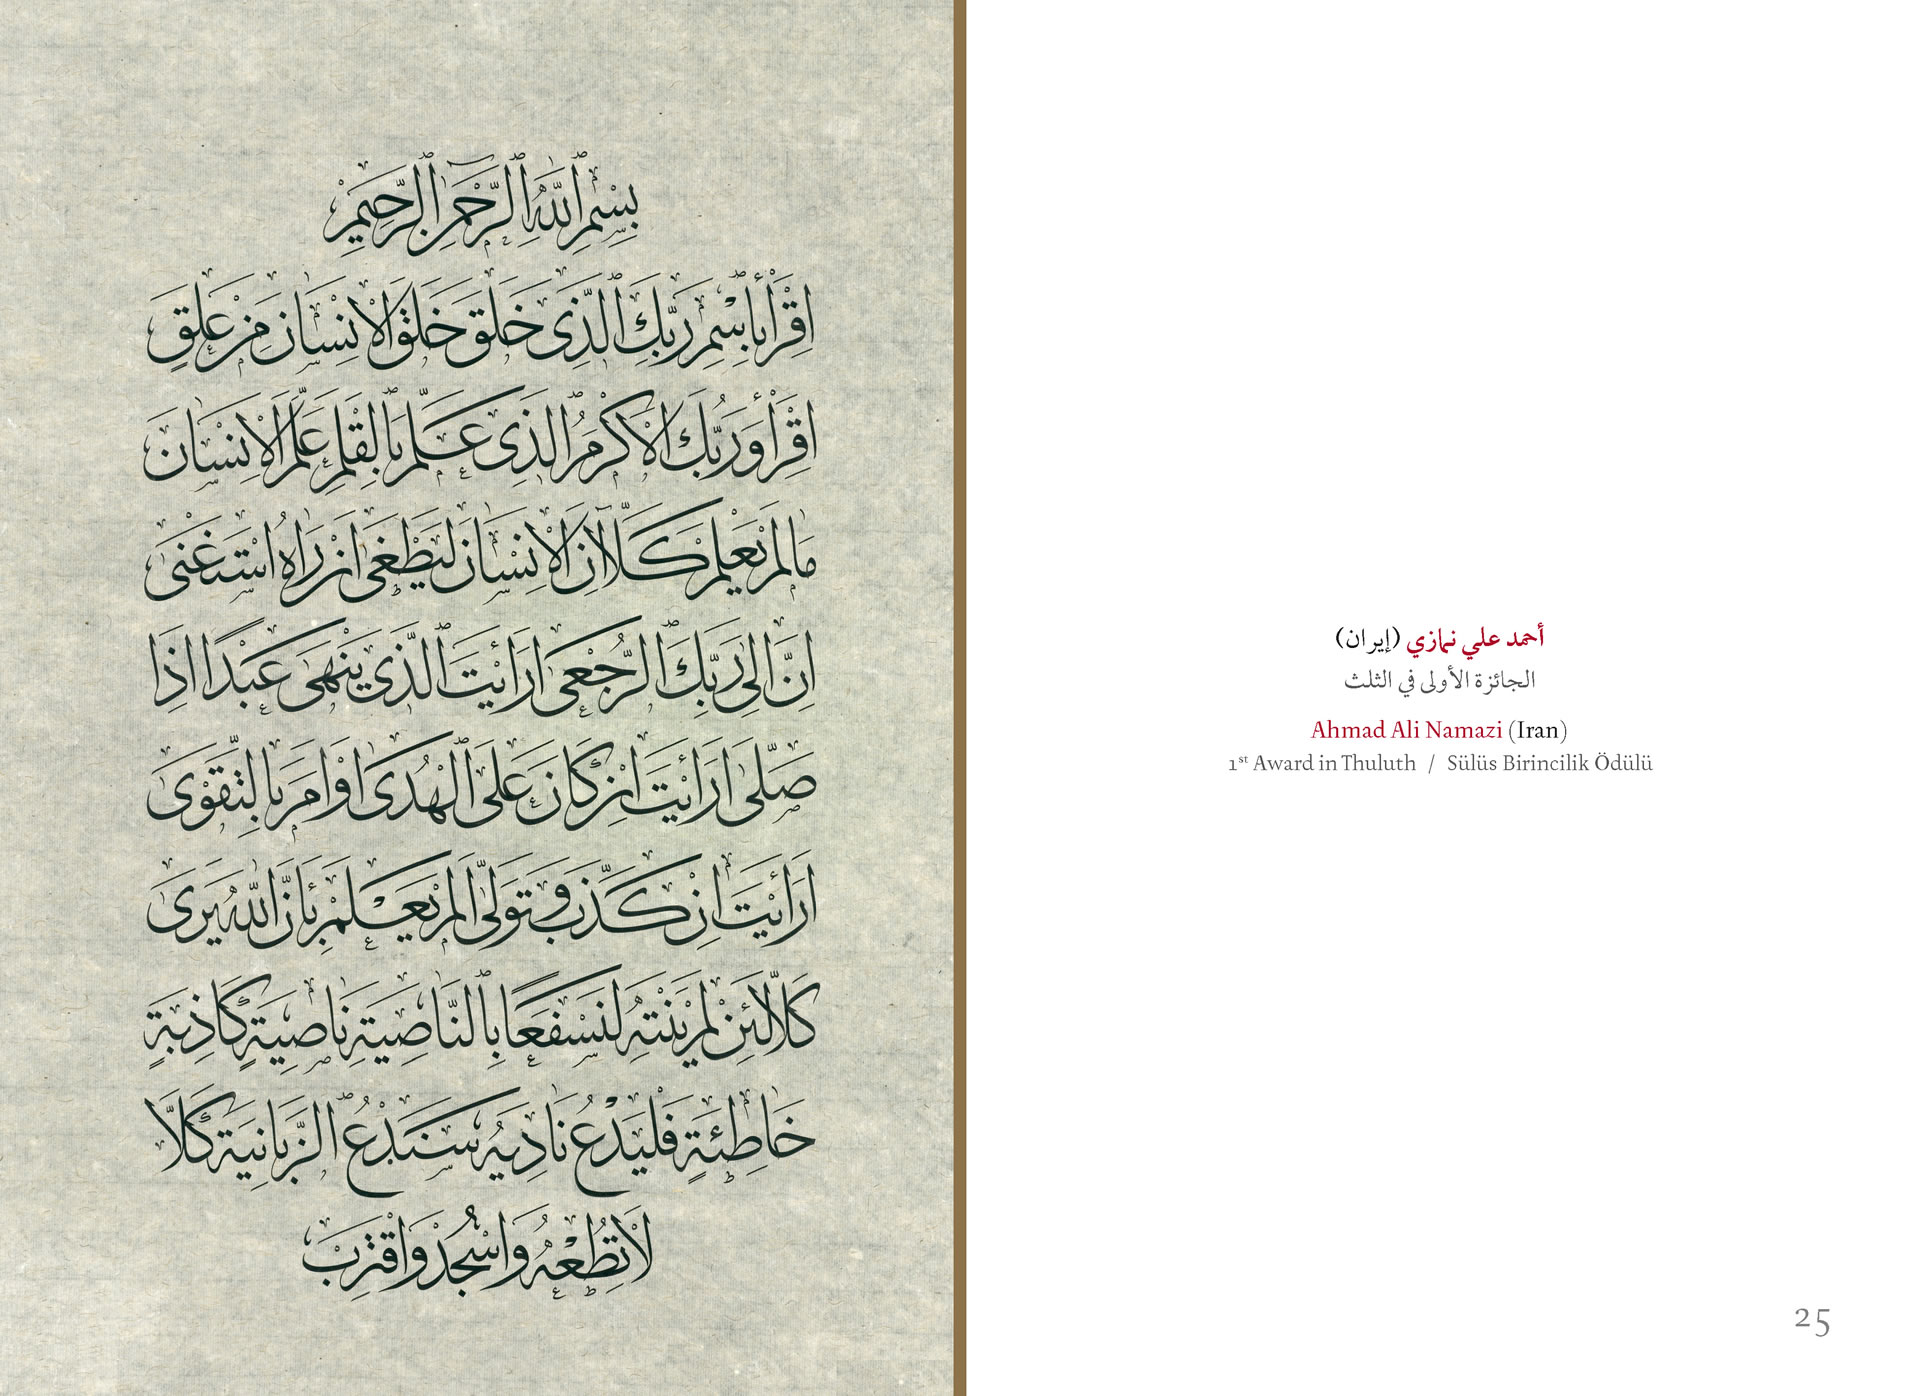 بِسْمِ ٱللّٰهِ ٱلرَّحْمٰنِ ٱلرَّحِيمِ
اِقْرَأْ بِاسْمِ رَبِّكَ ٱلَّذِى خَلَقَ خَلَقَ الْاِنْسَانَ مِنْ عَلَقٍ
اِقْرَأْ وَرَبُّكَ الْاَكْرَمُ ٱلَّذِى عَلَّمَ بِالْقَلَمِ عَلَّمَ الْاِنْسَانَ
مَا لَمْ يَعْلَمْ كَلَّا اِنَّ الْاِنْسَانَ لَيَطْغٰى اَنْ رَاٰهُ اسْتَغْنٰى
اِنَّ اِلٰى رَبِّكَ ٱلرُّجْعٰى اَرَاَيْتَ ٱلَّذِى يَنْهٰى عَبْدًا اِذَا
صَلّٰى اَرَاَيْتَ اِنْ كَانَ عَلَى ٱلْهُدٰى اَوْ اَمَرَ بِالتَّقْوٰى
اَرَاَيْتَ اِنْ كَذَّبَ وَتَوَلّٰى اَلَمْ يَعْلَمْ بِاَنَّ اللّٰهَ يَرٰى
كَلَّا لَئِنْ لَمْ يَنْتَهِ لَنَسْفَعًا بِٱلنَّاصِيَةِ نَاصِيَةٍ كَاذِبَةٍ
خَاطِئَةٍ فَلْيَدْعُ نَادِيَهُ سَنَدْعُ ٱلزَّبَانِيَةَ كَلَّا
لَا تُطِعْهُ وَاسْجُدْ وَاقْتَرِبْ
أحمد علي نمازي (إيران)
الجائزة الأولى في الثلث
Ahmad Ali Namazi (Iran)
1st Award in Thuluth / Sülüs Birincilik Ödülü
25